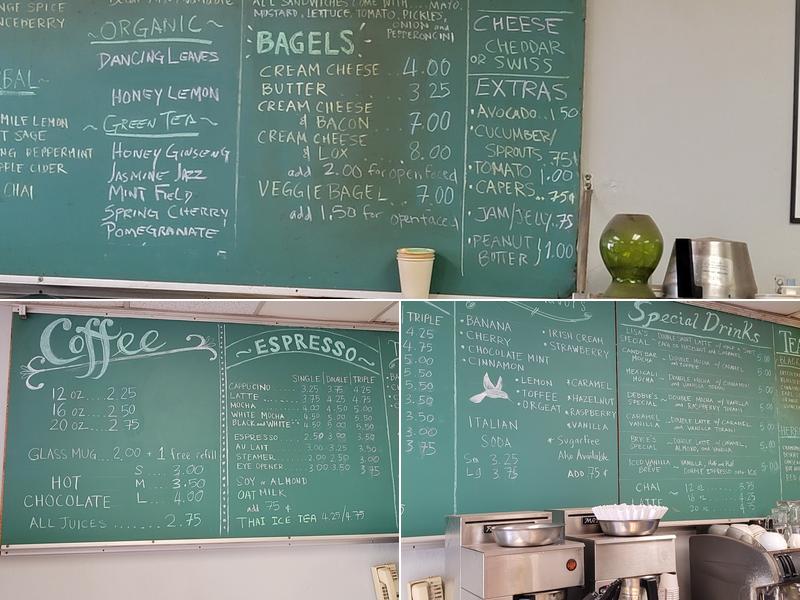 NGE SPICE
NCEBERRY
BAL
MILE LEMON
T SAGE
NG PEPPERMINT
PPLE CIDER
CHAI
~ORGANIC~
DANCING LEAVES
HONEY LEMON
~GREEN TEA~
HONEY GINSENG
JASMINE JAZZ
MINT FIELD
SPRING CHERRY
POMEGRANATE
ALL SANDWICHES COME WITH.... MAYO,
MUSTARD, LETTUCE, TOMATO, PICKLES,
ONION and
PEPPERONCINI
BAGELS
CREAM CHEESE...4.00
BUTTER ... 3 25
CREAM CHEESE
& BACON 7.00
CREAM CHEESE
& LOX 8.00
add 2.00 for open faced
VEGGIE BAGEL.. 7.00
add 1.50 for open faced
CHEESE
CHEDDAR
OR SWISS
EXTRAS
•AVOCADO..1 50
•CUCUMBER/
SPROUTS .75¢
•TOMATO 1.00
•CAPERS..75¢
•JAM/JELLY.75
•PEANUT
BUTTER }1.00
Coffee
12 oz.....2.25
16 oz.... 2 50
20 oz.... 2 75
GLASS MUG...2,00 + 1 free refill
HOT
CHOCOLATE
S ... 3.00
M ... 3.50
L ... 4.00
ALL JUICES ....... 2.75
~ESPRESSO~
SINGLE DOUBLE TRIPLE
CAPPUCINO 3.25 3.75 4.25
LATTE 3.75 4.25 4.75
MOCHA 4.00 4.50 5.00
WHITE MOCHA 4.50 5.00 5.50
BLACK and WHITE 4.50 5.00 5.50
ESPRESSO 2.50 3.00 3.50
AU LAIT 3.00 3.25 3.50
STEAMER 2.00 2.50 3.00
EYE OPENER 3.00 3.50 3 75
SOY or ALMOND
OAT MILK
add 75 ¢
THAI ICE TEA 4.25/4.75
TRIPLE
4.25
4.75
5.00
5.50
5.50
3.50
3.50
3.00
3 75
•BANANA
CHERRY
•CHOCOLATE MINT
•CINNAMON
•IRISH CREAM
•STRAWBERRY
•LEMON
•TOFFEE
•ORGEAT
•CARAMEL
•HAZELNUT
•RASPBERRY
•VANILLA
•Sugarfree
Also Available
ADD .75¢
ITALIAN
SODA
Sm 3.25
Lg 3.75
Special Drinks
LISA'S
SPECIAL
CANDY BAR
MOCHA
MEXICALI
MOCHA
DEBBIE'S
SPECIAL
CARAMEL
VANILLA
BRYCE'S
SPECIAL
ICED VANILLA
BREVE
CHAI
LATTE
12 oz 3.75
16 oz 4.25
20 oz 4.75